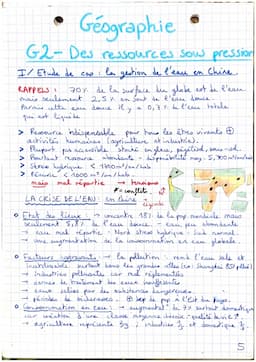 Géographie
G2 - Des ressources sous pression
I/ Etude de cas : la gestion de l'eau en Chine.
RAPPELS : 70% de la surface du globe est de l'eau
mais seulement 2,5% en sont de l'eau douce.
Parmi cette eau douce il y a 0,7% de l'eau totale
qui est liquide
> Ressource indispensable pour tous les êtres vivants ⊕
activités humaines (agriculture et industrie).
> Plupart pas accessible : stocké en glace, pergélisol, sous-sol.
> Pourtant ressource abondante - disponibilité moy. : 5 700 m³/an/hab
> Stress hydrique < 1700 m³/an/hab
> Pénurie < 1000 m³/an/hab
mais mal répartie → tensions
≠ conflit
LA CRISE DE L'EAU : en Chine
o Etat des lieux : → concentre 18% de la pop mondiale mais
seulement % de l'eau douce. → eau peu abondante
→ eau mal répartie : Nord stress hydrique ; Sud normal.
→ une augmentation de la consommation en eau globale.
o Facteurs aggravants : → la pollution : rend l'eau sale et
inutilisable surtout dans les grandes villes (ex: Shanghai 85% pollué)
→ industries polluantes car mal réglementées
→ carence de traitement des eaux
→ eaux salies par des substances dangereuses.
→ périodes de sécheresses. ⊕ de pop à l'Est du pays.
o Consommation en eau : → augmentat° de % surtout domestique
car création d'une classe moyenne donc + qualité de vie
→ agriculture représente ; industrie et domestique
5